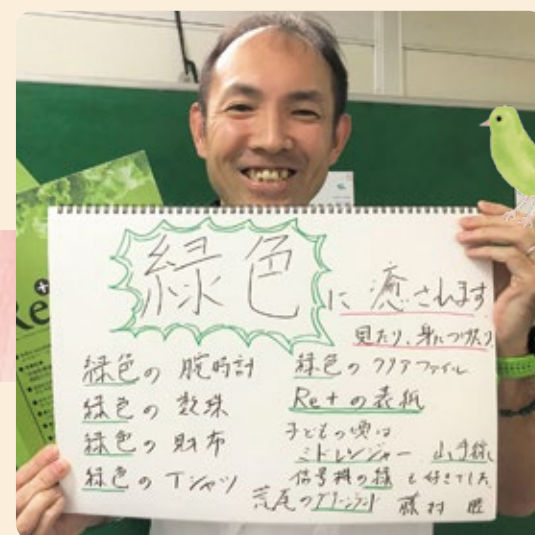 緑色
に癒されます
見たり、身につけたり
緑色の腕時計
緑色の数珠
緑色の財布
緑色のTシャツ
緑色のクリアファイル
Re+の表紙
子どもの頃は
ミドレンジャー 山手線
信号機の緑も好きでした
荒尾のグリーンランド
藤村
Re+